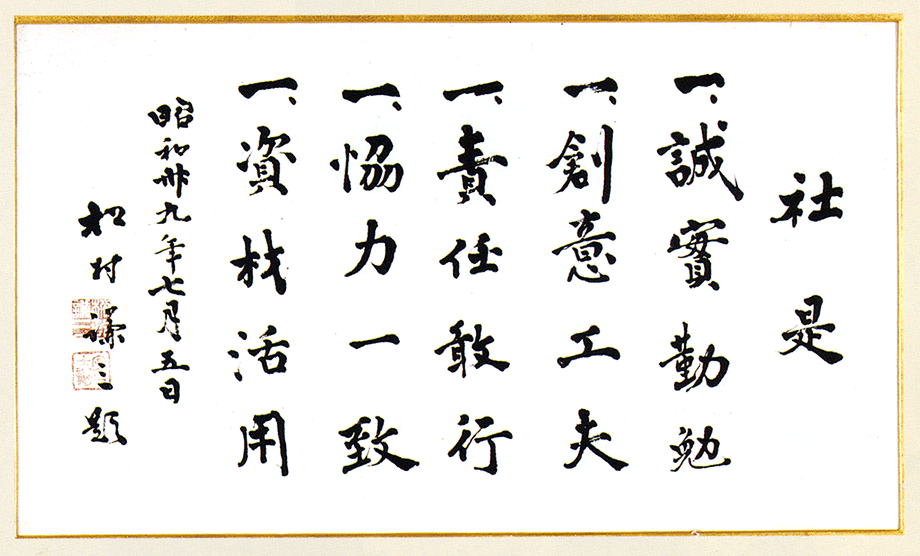 社是
一、誠實勤勉
一、創意工夫
一、責任敢行
一、協力一致
一、資材活用
昭和卅九年七月五日
松村謙三題